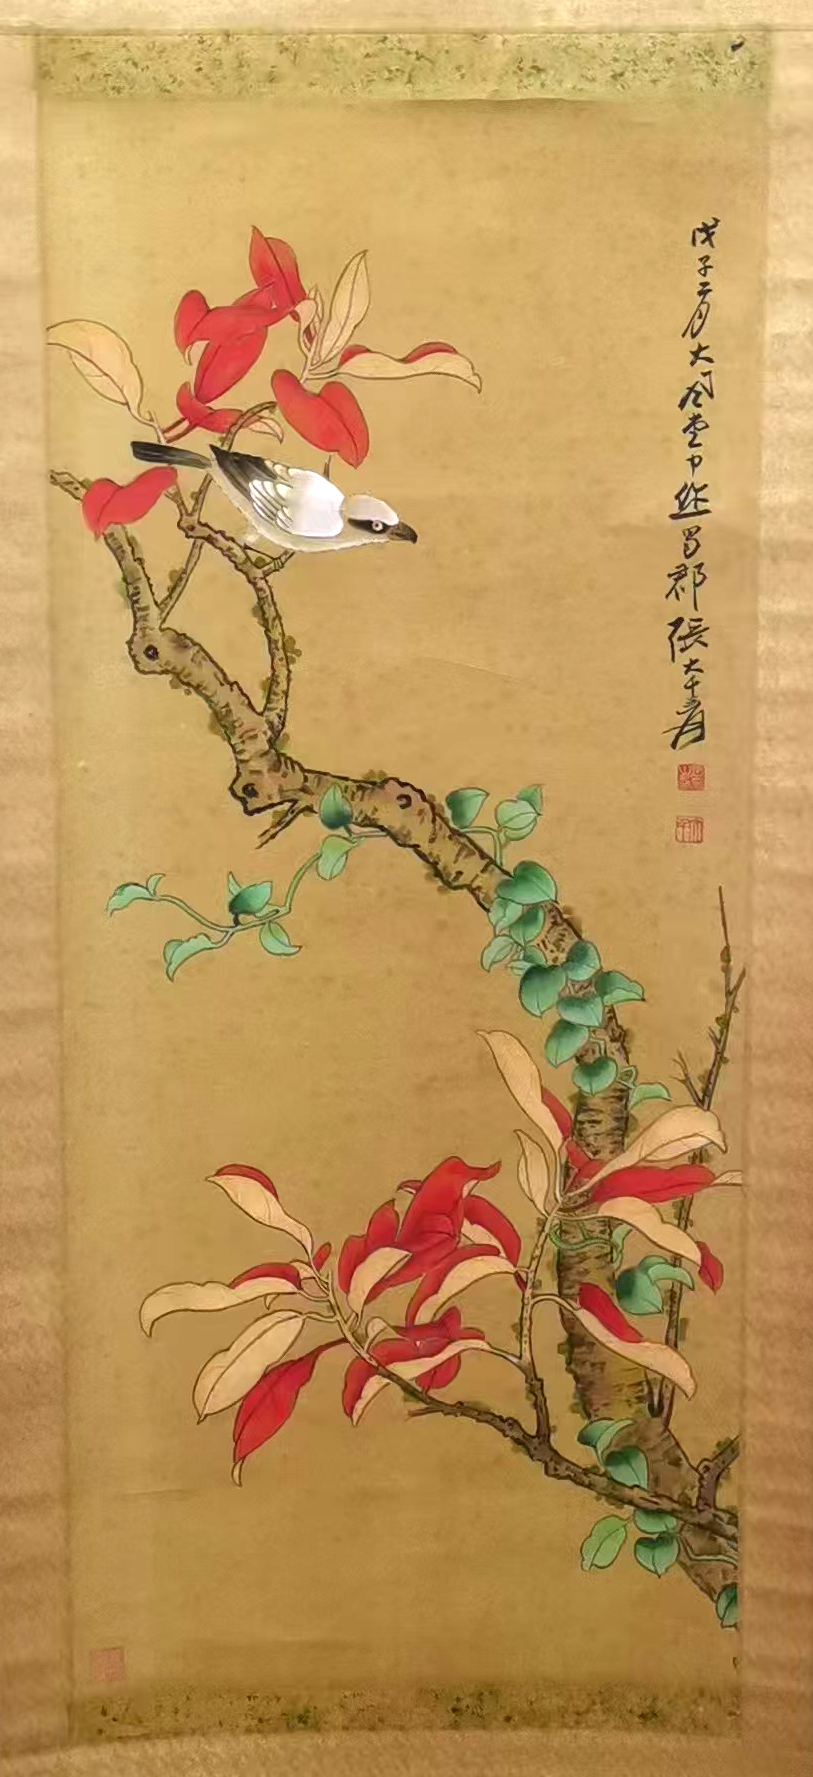 戊子二月大风堂中作蜀郡張大千爰